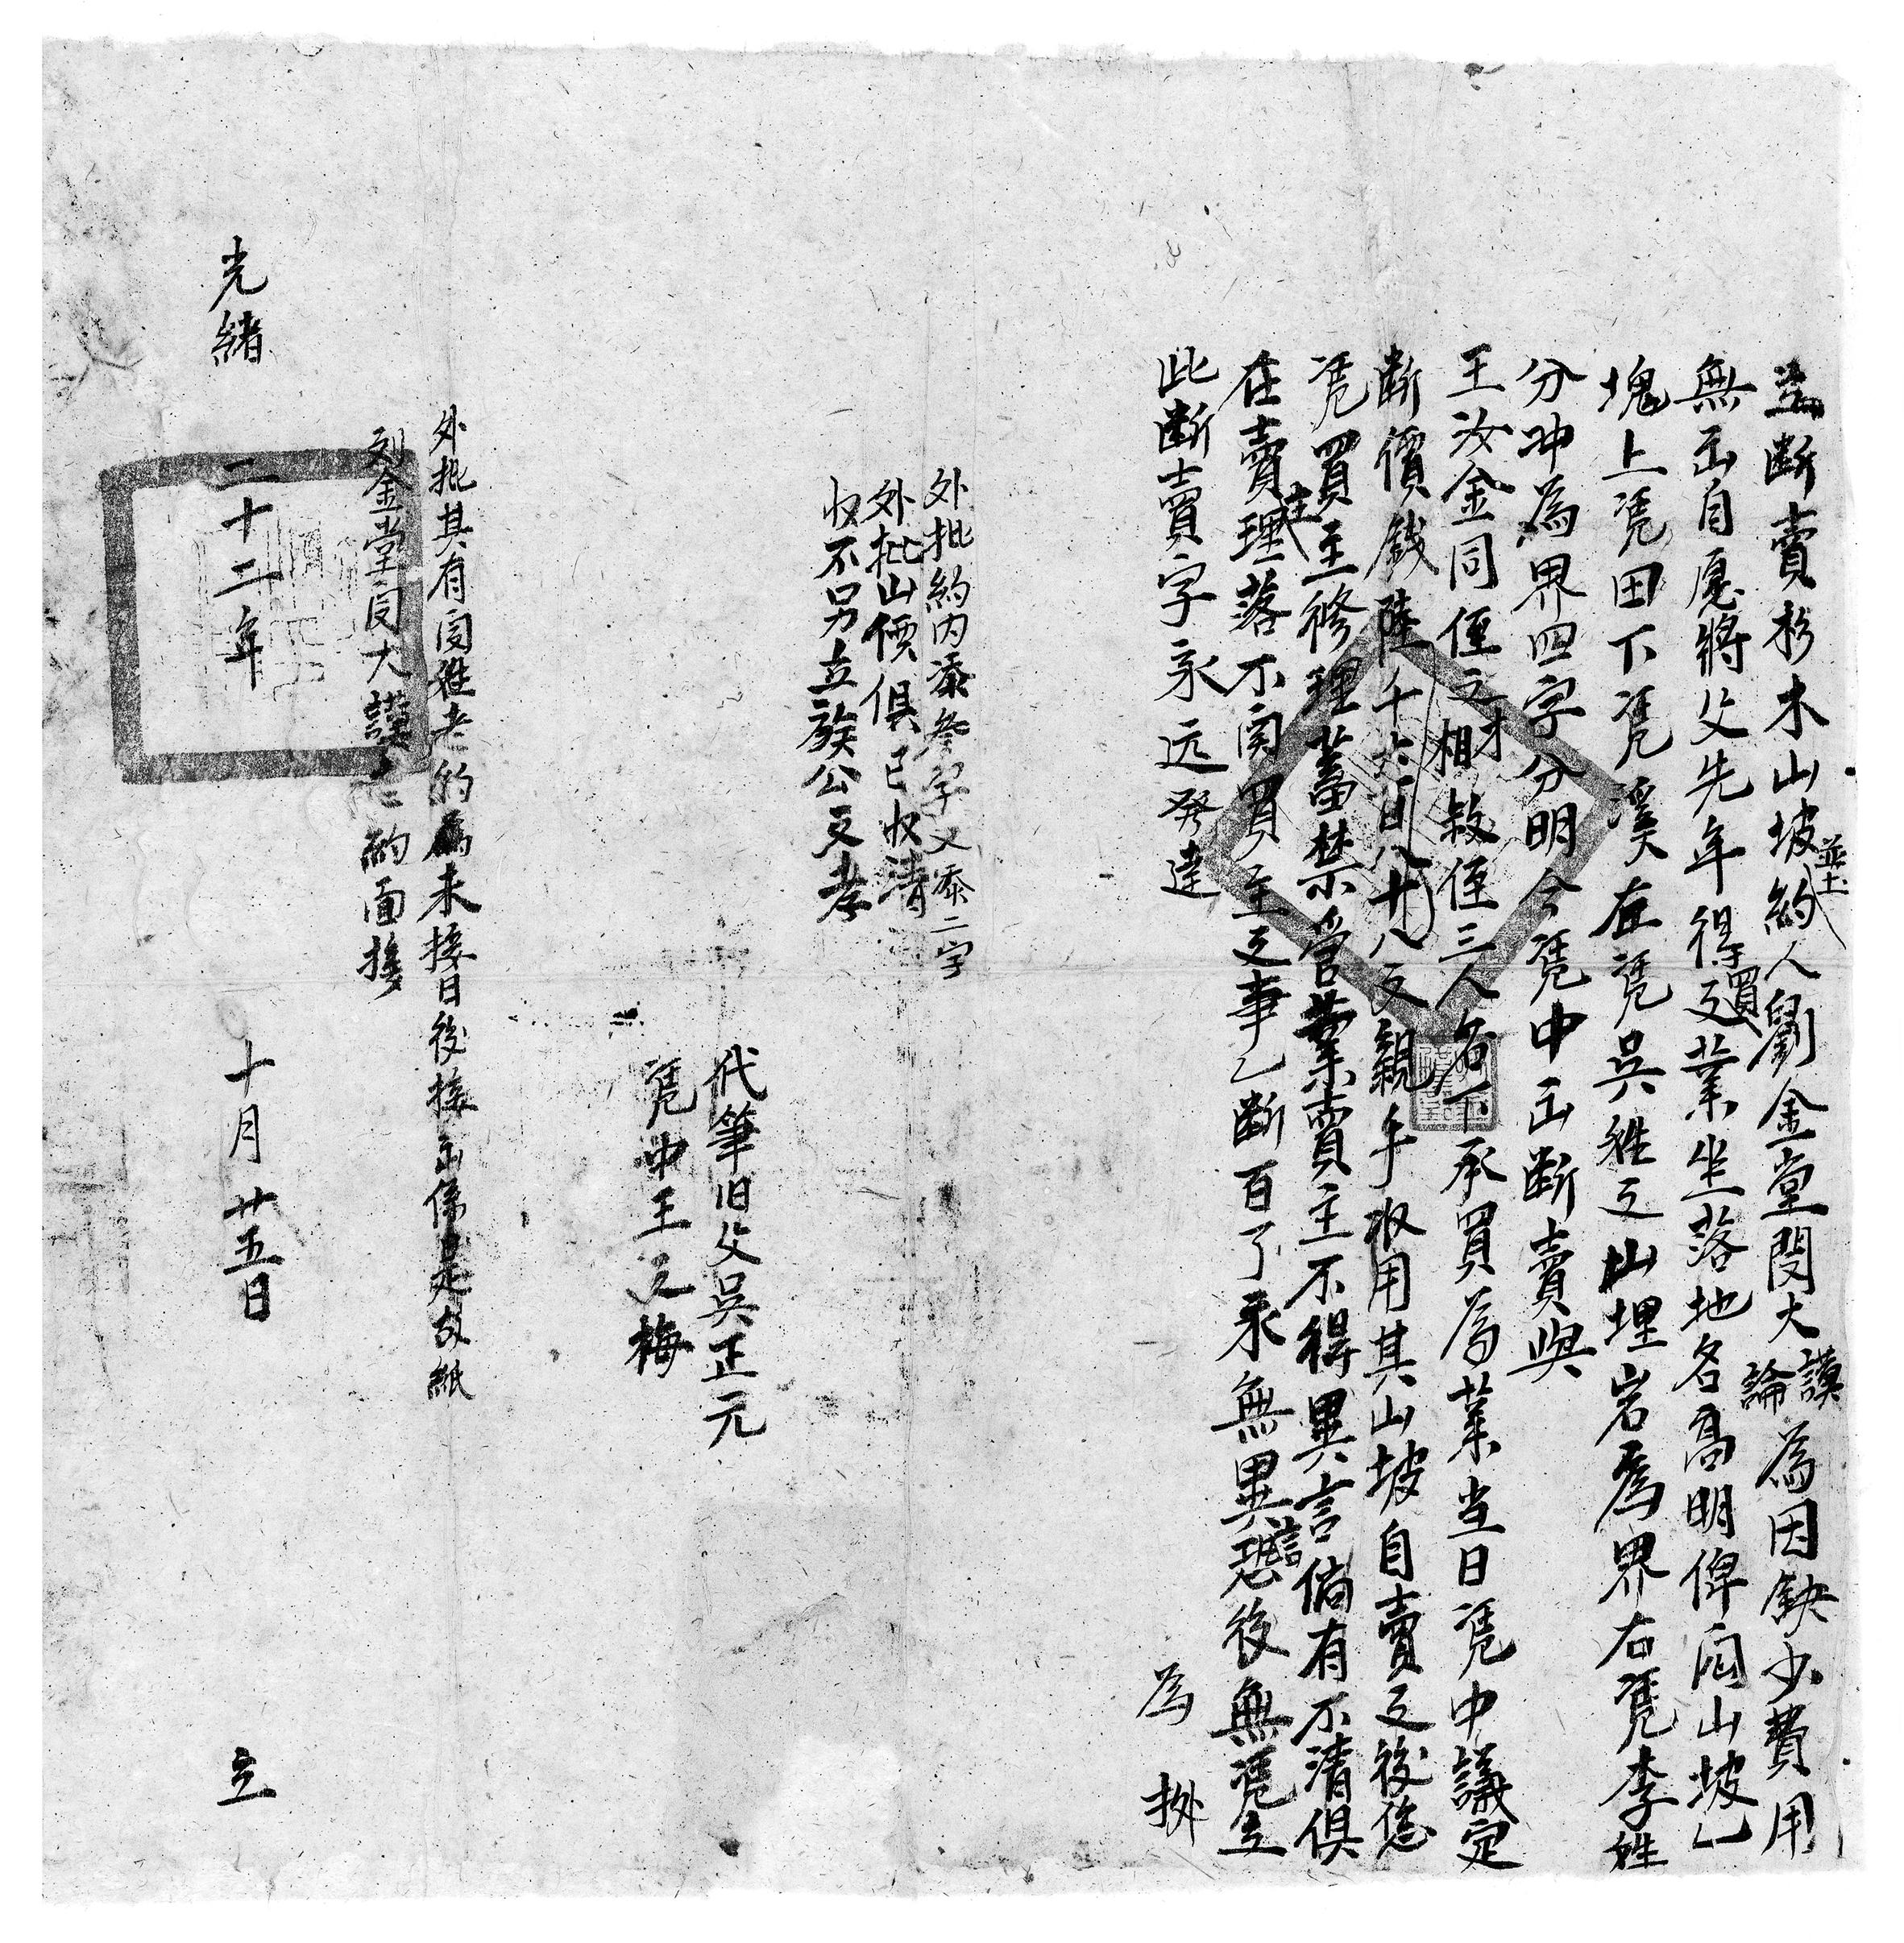 立斷賣杉木山坡並土約人劉金堂閔大謨論為因缺少費用
無出自愿將父先年得買之業坐落地名高明俾冲山坡乙
塊上凴田下凴溪左凴吳姓之山埋岩為界右凴李姓
分冲為界四字分明今凴中出斷賣與
王汝金同侄之才相叙侄三人名下承買為業当日凴中議定
斷價錢陸千六百八十八文親手收用其山坡自賣之後恁
凴買主修理蓄禁管業賣主不得異言倘有不清俱
在賣主理落不関買主之事乙斷百了永無異言恐後無凴立
此斷賣字永远發達
為 㨿
外批約内添叁字又添二字
外批山價俱已收清
收不另立族公文孝
代筆旧父吳正元
凴中王之梅
外批其有閔姓老約為未接日後接出係是故紙
刘金堂閔大謨老約面接
光緒二十二年十月廿五日立